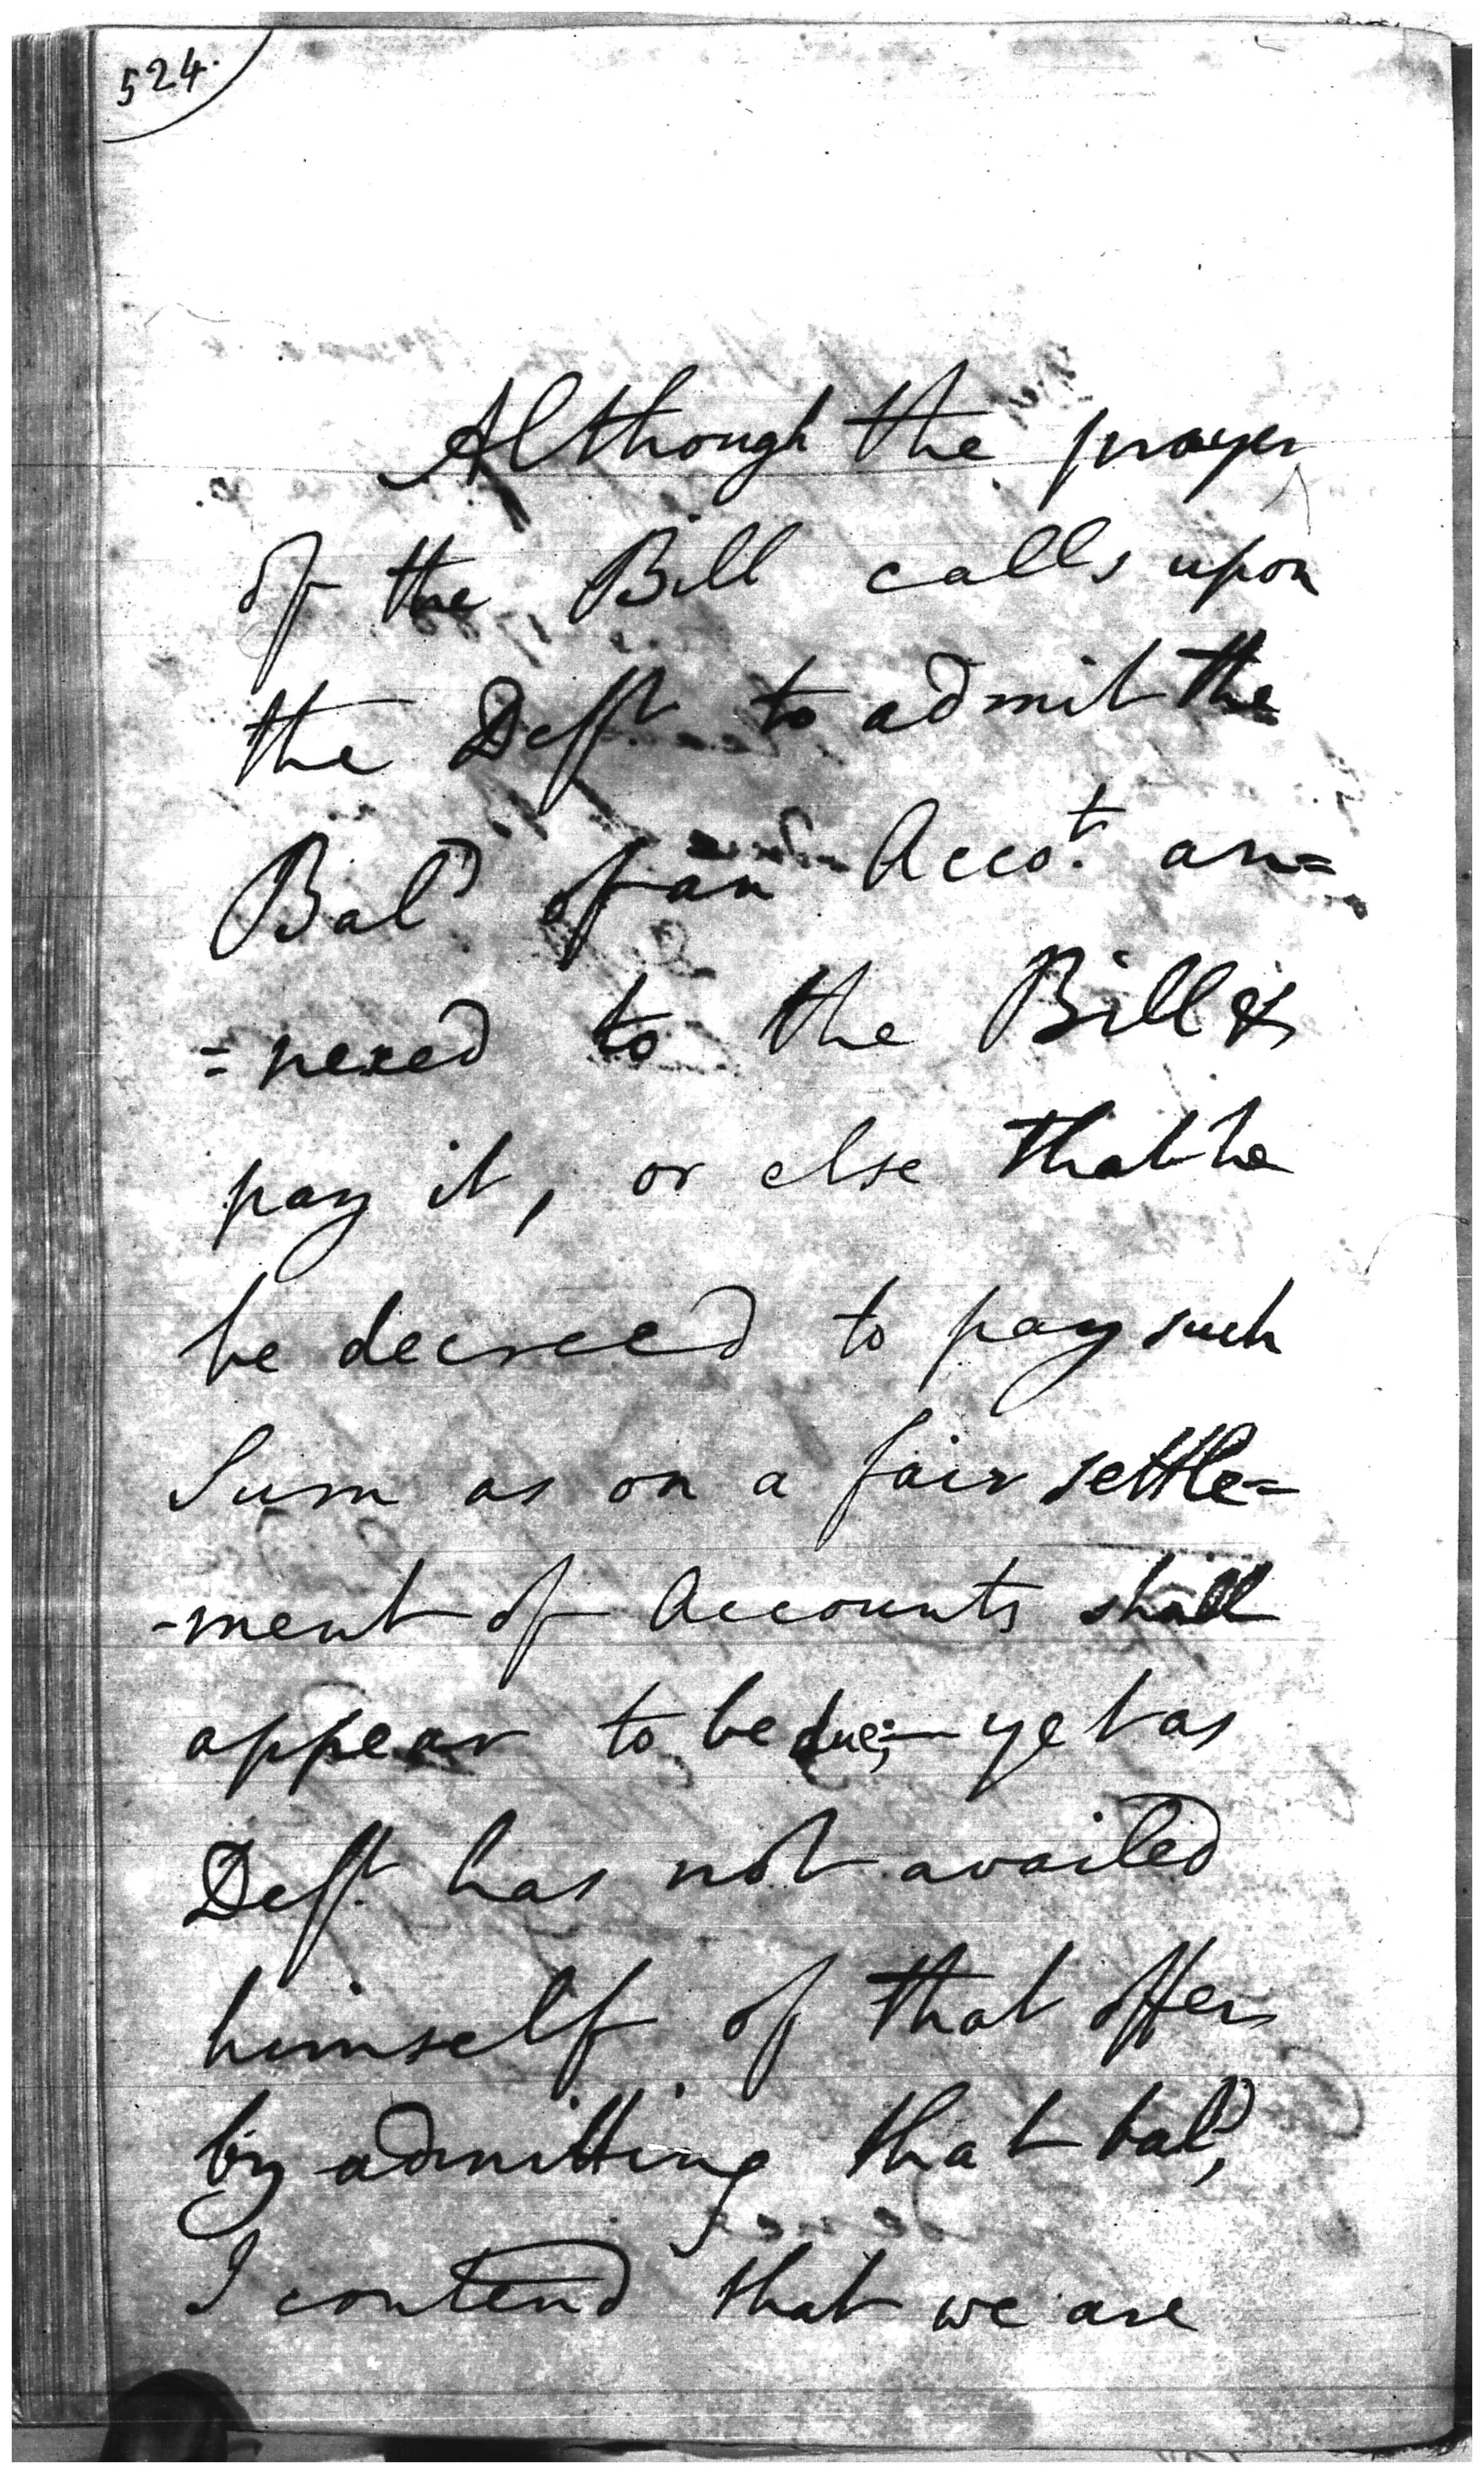 524.
Although the prayer
of the Bill calls upon
the Defft to admit the
Bal? of an Acco.t an=
=nexed to the Bill &
pay it, or else that he
be decreed to pay such
Sum as on a fair settle=
-ment of Accounts shall
appear to be due;- yet as
Defft. has not availed
himself of that offer
by admitting that bal?,
I contend that we are